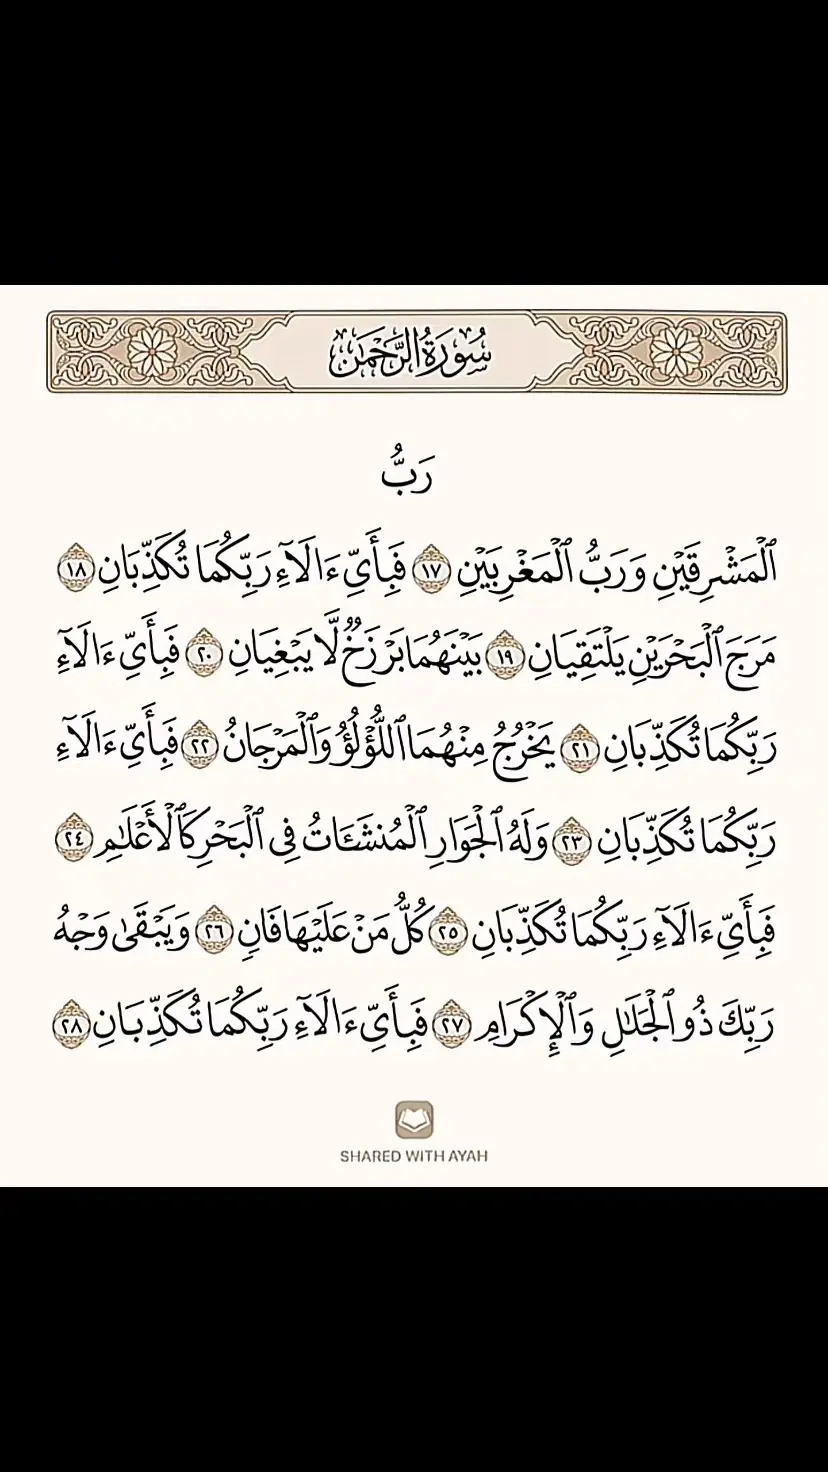 سُورَةُ الرَّحْمَٰن
رَبُّ
ٱلْمَشْرِقَيْنِ وَرَبُّ ٱلْمَغْرِبَيْنِ ١٧ فَبِأَيِّ ءَالَآءِ رَبِّكُمَا تُكَذِّبَانِ ١٨
مَرَجَ ٱلْبَحْرَيْنِ يَلْتَقِيَانِ ١٩ بَيْنَهُمَا بَرْزَخٌ لَّا يَبْغِيَانِ ٢٠ فَبِأَيِّ ءَالَآءِ
رَبِّكُمَا تُكَذِّبَانِ ٢١ يَخْرُجُ مِنْهُمَا ٱللُّؤْلُؤُ وَٱلْمَرْجَانُ ٢٢ فَبِأَيِّ ءَالَآءِ
رَبِّكُمَا تُكَذِّبَانِ ٢٣ وَلَهُ ٱلْجَوَارِ ٱلْمُنشَـَٔاتُ فِى ٱلْبَحْرِ كَٱلْأَعْلَـٰمِ ٢٤
فَبِأَيِّ ءَالَآءِ رَبِّكُمَا تُكَذِّبَانِ ٢٥ كُلُّ مَنْ عَلَيْهَا فَانٍ ٢٦ وَيَبْقَىٰ وَجْهُ
رَبِّكَ ذُو ٱلْجَلَـٰلِ وَٱلْإِكْرَامِ ٢٧ فَبِأَيِّ ءَالَآءِ رَبِّكُمَا تُكَذِّبَانِ ٢٨
SHARED WITH AYAH